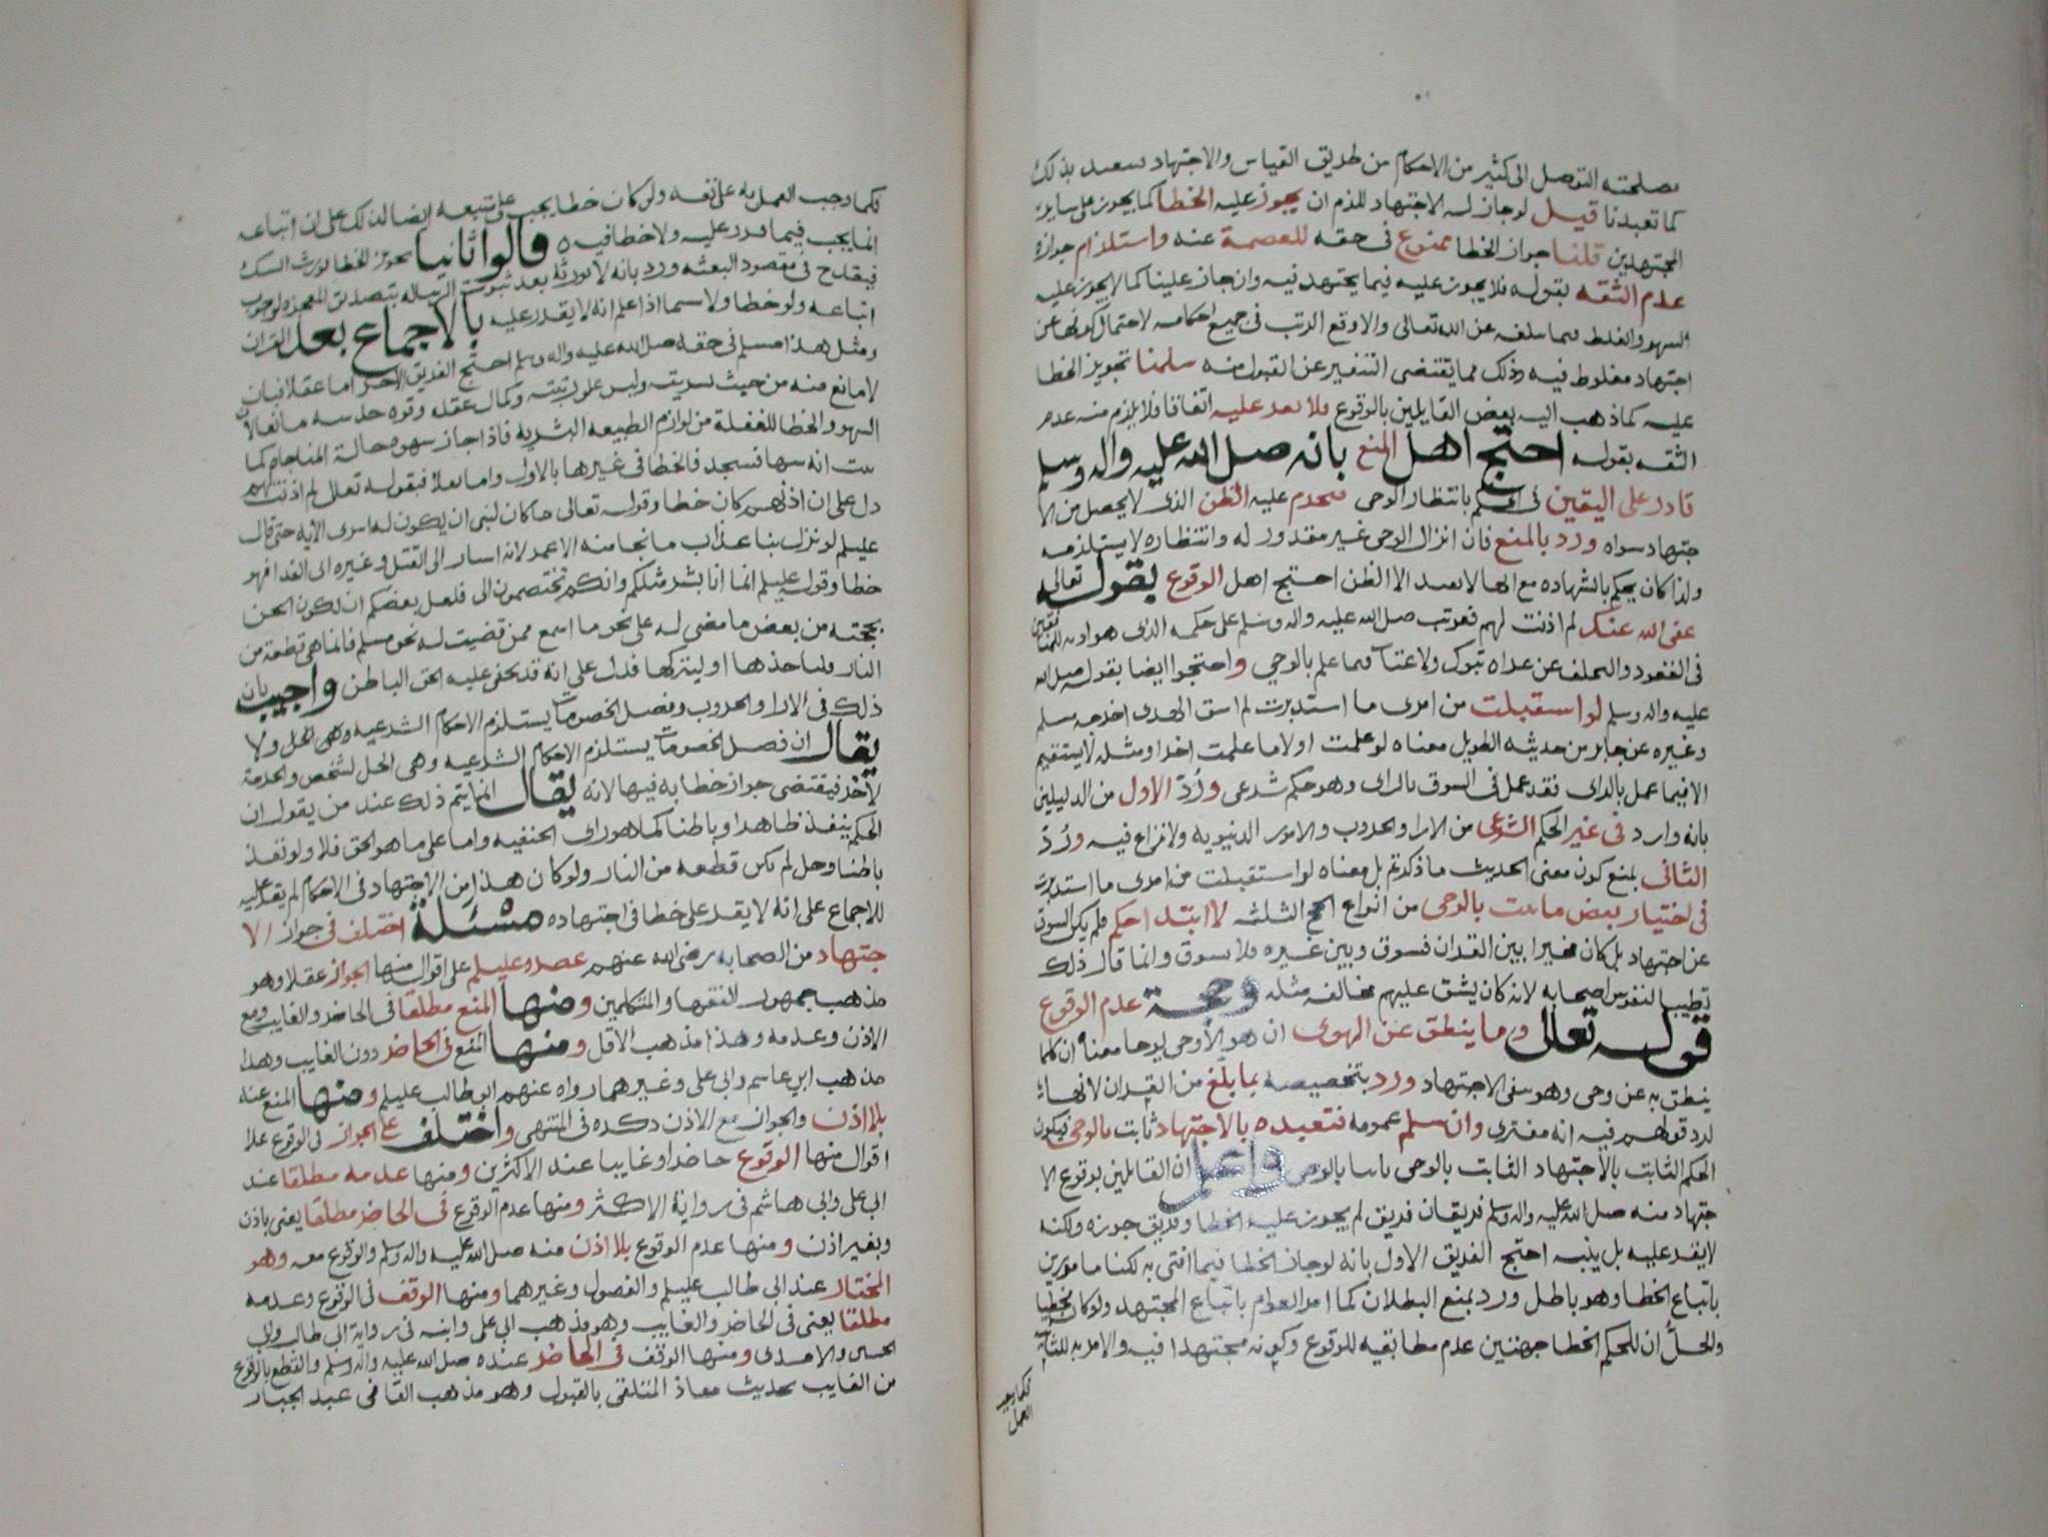 مصلحته التوصل الى كثير من الاحكام من طريق القياس والاجتهاد تعبد بذلك
كما تعبدنا قيل لو جاز له الاجتهاد للذم ان يجوز عليه الخطا كما يجوز على ساير
المجتهدين قلنا جواز الخطا ممنوع في حقه للعصمة عنه واستلزام جوازه
عدم الثقه بقوله فلا يجوز عليه فيما يجتهد فيه وان جاز علينا كما لا يجوز عليه
السهو والغلط فيما سلفه عن الله تعالى والا وقع الريب في جميع احكامه لاحتمال كونها عن
اجتهاد مغلوط فيه وذلك مما يقتضى التنفير عن القبول منه سلمنا تجويز الخطا
عليه كما ذهب اليه بعض القايلين بالوقوع فلا يقر عليه اتفاقا فلا يلزم منه عدم
الثقه بقوله احتج اهل المنع بانه صلى الله عليه واله وسلم
قادر على اليقين في الحكم بانتظار الوحى فيحرم عليه الظن الذى لا يحصل من الا
جتهاد سواه ورد بالمنع فان انزال الوحى غير مقدور له وانتظاره لا يستلزمه
ولذا كان يحكم بالشهاده مع انها لا تفيد الا الظن احتج اهل الوقوع بقوله تعالى
عفى الله عنك لم اذنت لهم فعوتب صلى الله عليه واله وسلم على حكمه الذى هو اذنه للمنافقين
في القعود والتخلف عن غزاه تبوك ولا عتاب فيما علم بالوحي واحتجوا ايضا بقوله صلى الله
عليه واله وسلم لو استقبلت من امرى ما استدبرت لم اسق الهدى اخرجه مسلم
وغيره عن جابر من حديثه الطويل معناه لو علمت اولا ما علمت اخرا ومثله لا يستقيم
الا فيما عمل بالراى فقد عمل في السوق بالراى وهو حكم شرعى ورُدّ الاول من الدليلين
بانه وارد في غير الحكم الشرعى من الارا والحروب والامور الدنيويه ولا نزاع فيه ورُدّ
الثانى بمنع كون معنى الحديث ما ذكرتم بل معناه لو استقبلت من امرى ما استدبرت
في اختيار بعض ما ثبت بالوحى من انواع الحج الثلثه لا ابتدا حكم فلم يكن السوق
عن اجتهاد بل كان مخيرا بين القران فسوق وبين غيره فلا سوق وانما قال ذلك
تطييبا لنفوس اصحابه لانه كان يشق عليهم مخالفه مثله وحجة عدم الوقوع
قوله تعالى وما ينطق عن الهوى ان هو الا وحى يوحا معناه ان كلما
ينطق به عن وحى وهو ينفى الاجتهاد ورد بتخصيصه بما بلغ من القران لانها
لرد قولهم فيه انه مفترى وان سلم عمومه فتعبده بالاجتهاد ثابت بالوحى فيكون
الحكم الثابت بالاجتهاد الثابت بالوحى ثابتا بالوحى واعلم ان القايلين بوقوع الا
جتهاد منه صلى الله عليه واله وسلم فريقان فريق لم يجوز عليه الخطا وفريق جوزه ولكنه
لا يقر عليه بل ينبه احتج الفريق الاول بانه لو جاز الخطا فيما افتى به لكنا مامورين
باتباع الخطا وهو باطل ورد بمنع البطلان كما امر العوام باتباع المجتهد ولو كان مخطيا
والحلُّ ان للحكم الخطا جهتين عدم مطابقيه للوقوع وكونه مجتهدا فيه والامر به للثانيه
فكما وجب
العمل
فكما وجب العمل به على نفسه ولو كان خطا يجب على متبعه ايضا لذلك على ان اتباعه
انما يجب فيما قرر عليه ولا خطا فيه قالوا ثانيا تجويز الخطا يورث الشك
فيقدح في مقصود البعثه ورد بانه لا يورثه بعد ثبوت الرساله بتصديق المعجزه ولوجوب
اتباعه ولو خطا ولا سيما اذا علم انه لا يقرر عليه بالاجماع بعد القران
ومثل هذا مسلم في حقه صلى الله عليه واله وسلم احتج الفريق الاخر اما عقلا فبان
لا مانع منه من حيث بشريته وليس علو رتبته وكمال عقله وقوه حدسه مانعا لان
السهو والخطا للغفلة من لوازم الطبيعه البشريه فاذا جاز سهوه حالة المناجاه كما
ثبت انه سها فسجد فالخطا في غيرها بالاولى واما نقلا فبقوله تعالى لم اذنت لهم
دل على ان اذنهم كان خطا وقوله تعالى ما كان لنبى ان يكون له اسرى الايه حتى قال
عليلم لو نزل بنا عذاب ما نجا منه الا عمر لانه اشار الى القتل وغيره الى الفدا فهو
خطا وقوله عليلم انما انا بشر مثلكم وانكم تختصمون الى فلعل بعضكم ان يكون الحن
بحجته من بعض ما مضى له على نحو ما اسمع فمن قضيت له نحو مسلم فانما هى قطعة من
النار فلياخذها او ليتركها فدل على انه قد يخفى عليه الحق الباطن واجيب بان
ذلك في الارا والحروب وفصل الخصومات يستلزم الاحكام الشرعيه وهى الحل ولا
يقال ان فصل الخصومات يستلزم الاحكام الشرعيه وهى الحل لشخص والحرمة
لاخر فيقتضى جواز خطابه فيها لانه يقال انما يتم ذلك عند من يقول ان
الحكم ينفذ ظاهرا وباطنا كما هو راى الحنفيه واما على ما هو الحق فلا ولو نفذ
باطنا وحل لم تكن قطعه من النار ولو كان هذا من الاجتهاد في الاحكام لم يقر عليه
للاجماع على انه لا يقر على خطا في اجتهاده مسئلة اختلف في جواز الا
جتهاد من الصحابه رضى الله عنهم عصره عليلم على اقوال منها الجواز عقلا وهو
مذهب جمهور الفقها والمتكلمين ومنها المنع مطلقا في الحاضر والغايب ومع
الاذن وعدمه وهذا مذهب الاقل ومنها المنع في الحاضر دون الغايب وهذا
مذهب ابى عاسم وابى على وغيرهما رواه عنهم ابو طالب عليلم ومنها المنع عنه
بلا اذن والجواز مع الاذن ذكره في المنتهى واختلف على الجواز في الوقوع على
اقوال منها الوقوع حاضرا وغايبا عند الاكثرين ومنها عدمه مطلقا عند
ابى على وابى هاشم في رواية الاكثر ومنها عدم الوقوع في الحاضر مطلقا يعنى باذن
وبغير اذن ومنها عدم الوقوع بلا اذن منه صلى الله عليه واله وسلم والوقوع معه وهو
المختار عند ابى طالب عليلم والفصول وغيرهما ومنها الوقف في الوقوع وعدمه
مطلقا يعنى في الحاضر والغايب وهو مذهب ابى على وابنه في رواية ابى طالب وابى
الحسين والامدى ومنها الوقف في الحاضر عنده صلى الله عليه واله وسلم والقطع بالوقوع
من الغايب بحديث معاذ المتلقى بالقبول وهو مذهب القاضى عبد الجبار